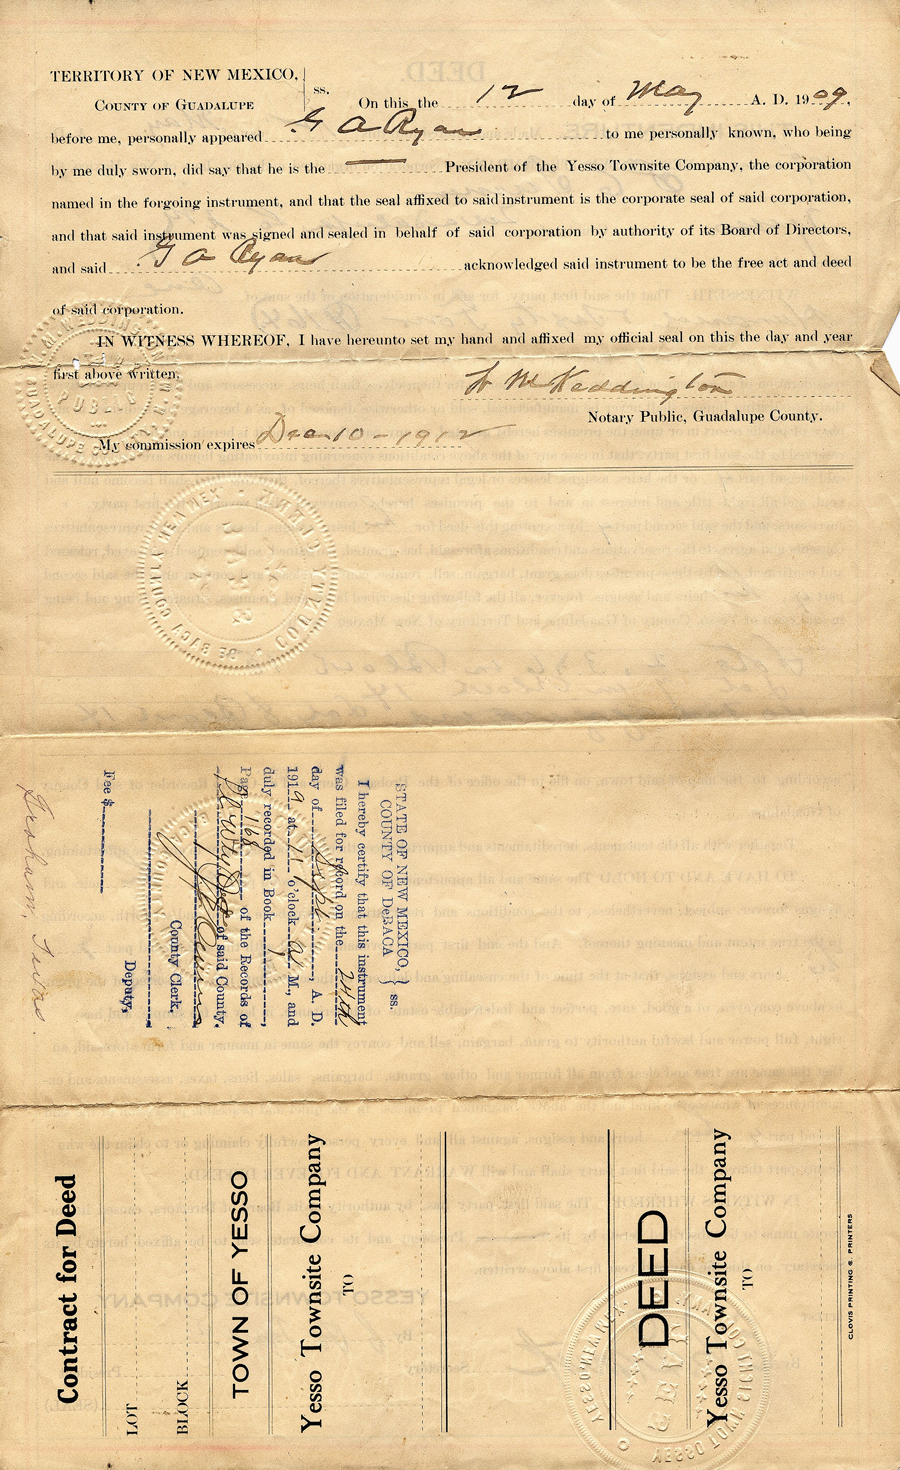 TERRITORY OF NEW MEXICO,
COUNTY OF GUADALUPE
ss.
On this the 12 day of May A. D. 1909,
before me, personally appeared G A Ryan to me personally known, who being
by me duly sworn, did say that he is the — President of the Yesso Townsite Company, the corporation
named in the forgoing instrument, and that the seal affixed to said instrument is the corporate seal of said corporation,
and that said instrument was signed and sealed in behalf of said corporation by authority of its Board of Directors,
and said G A Ryan acknowledged said instrument to be the free act and deed
of said corporation.
IN WITNESS WHEREOF, I have hereunto set my hand and affixed my official seal on this the day and year
first above written.
W M Keddington
Notary Public, Guadalupe County.
My commission expires Dec 10-1912
PUBLIC
GUADALUPE COUNTY, N. M.
COUNTY CLERK
DE BACA COUNTY, NEW MEX
STATE OF NEW MEXICO,
COUNTY OF DeBACA
ss.
I hereby certify that this instrument
was filed for record on the 24th
day of Sept, A. D.
1919 at 11 o'clock a M., and
duly recorded in Book 1
Page 168 of the Records of
of said County.
County Clerk.
Deputy.
Fee $
Graham, Texas.
Contract for Deed
LOT
BLOCK
TOWN OF YESSO
Yesso Townsite Company
TO
DEED
Yesso Townsite Company
TO
CLOVIS PRINTING & PRINTERS